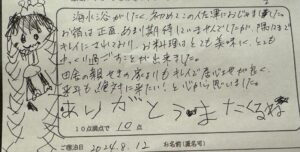 海水浴がしたく、初めてこの仁軍におじゃました。
お宿は正直あまり期待していませんでしたが、隅々まで
キレイにされており、お料理はとても美味しく、とても
楽しく過ごすことが出来ました。
田舎の親せきの家よりもキレイで居心地が良く
来年も絶対に来たい!と心から思いました。
ありがとうまたくるね
10点満点で 10 点
ご宿泊日 2024.8.12 お名前(匿名可)